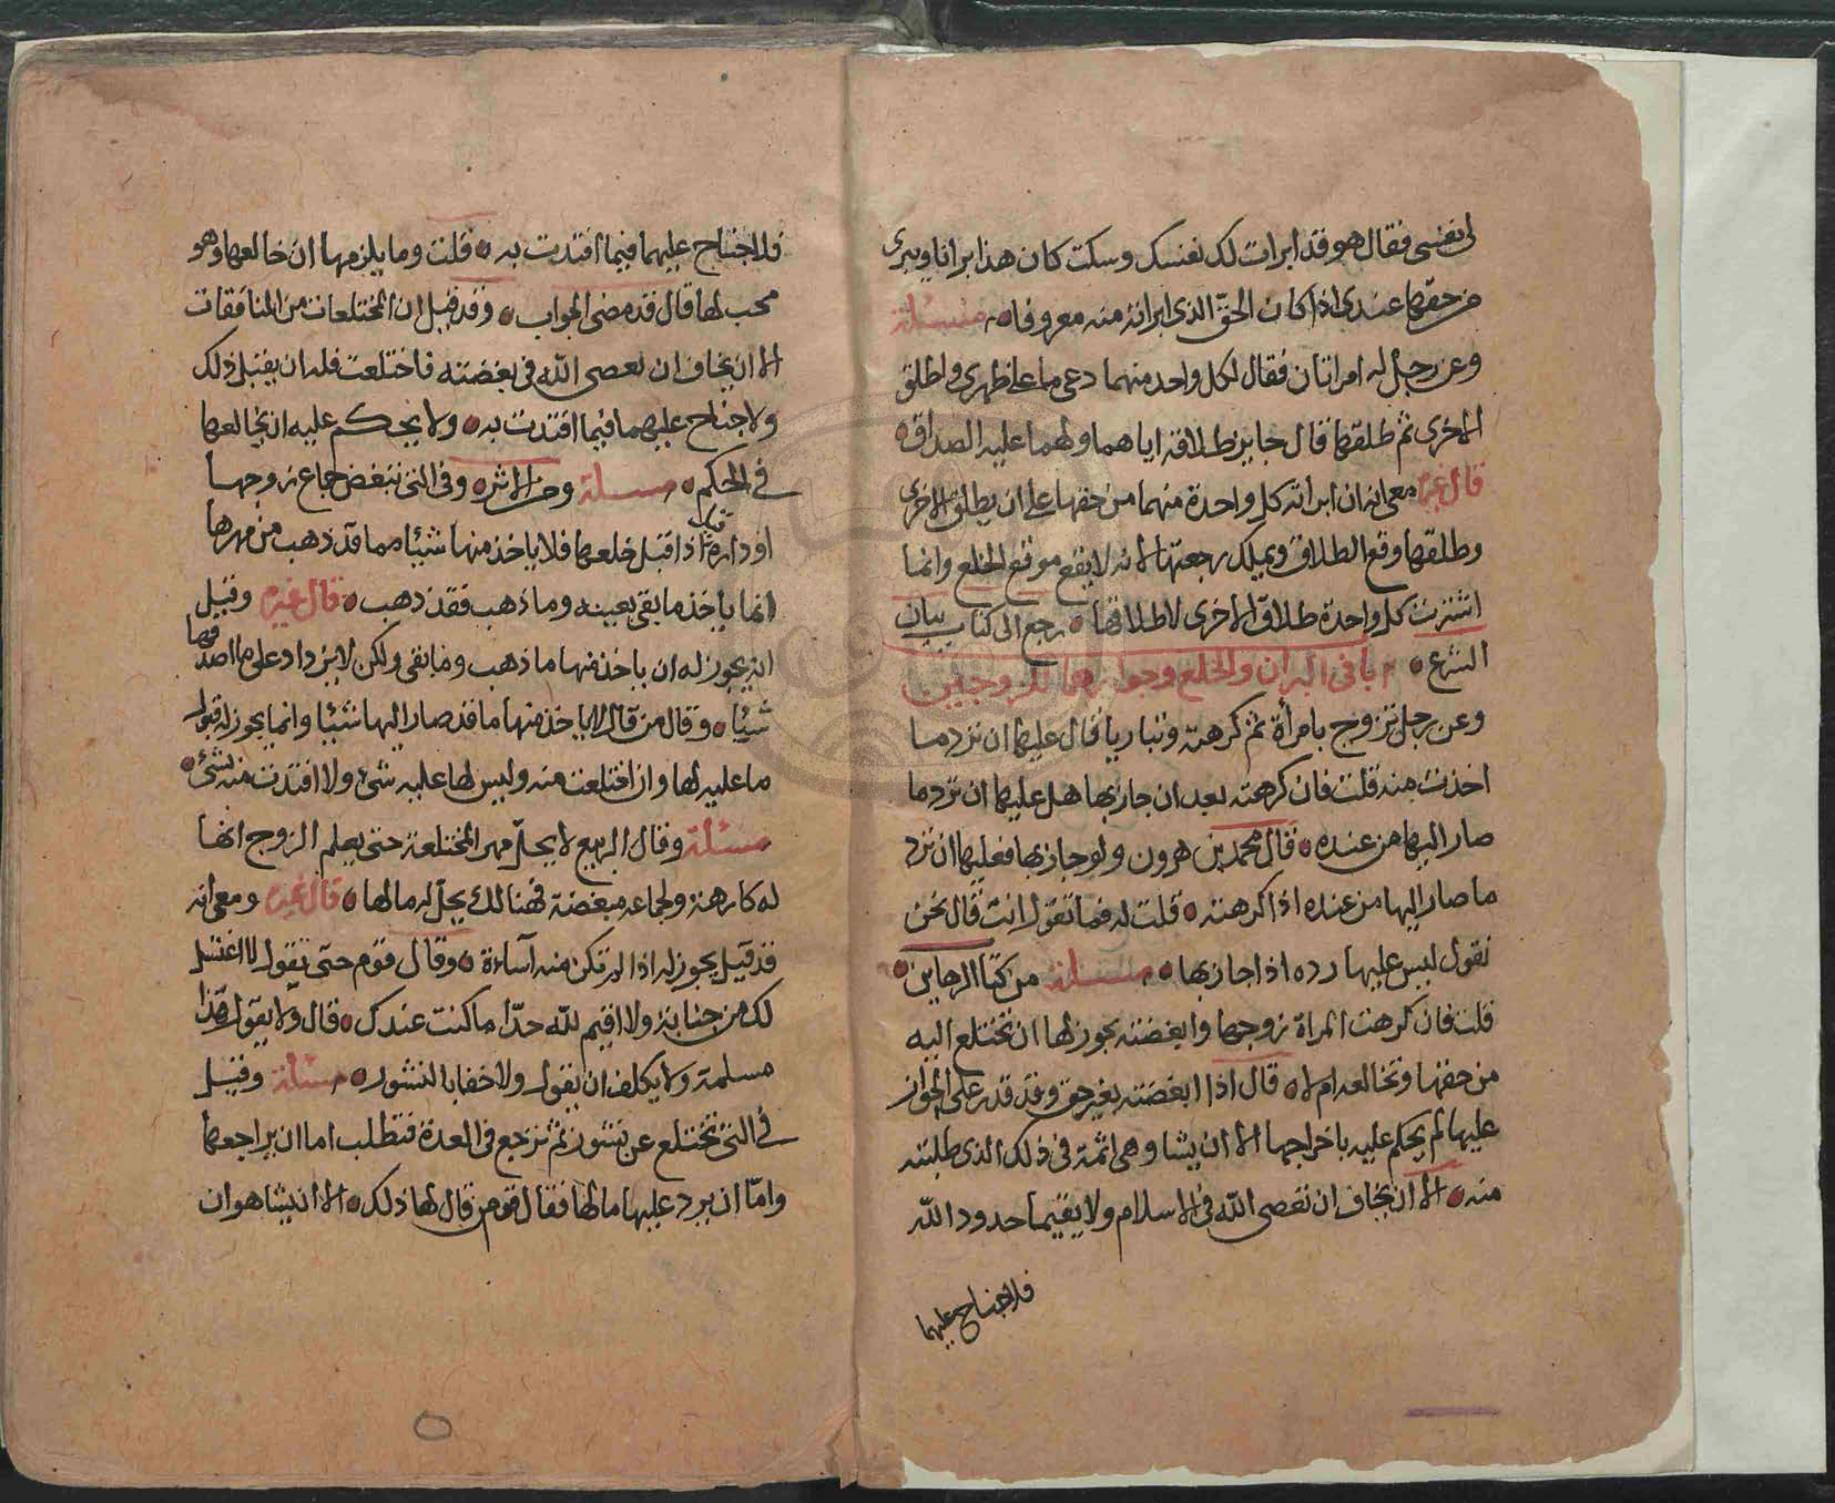 لى نفسى فقال هو قد ابرات لك نفسك وسكت كان هذا برانا ويبرى
من حقها عندى اذا كان الحق الذى ابراته منه معروفا مسئلة
وعن رجل له امراتان فقال لكل واحد منهما دعى ما على ظهرى واطلق
الاخرى ثم طلقها قال جايز طلاقه اياهما ولهما عليه الصداق
قال غيره معى انه ان ابراته كل واحدة منهما من حقها على ان يطلق الاخرى
وطلقها وقع الطلاق ويملك رجعتها لانه لا يقع موقع الخلع وانما
اشترت كل واحدة طلاق الاخرى لا طلاقها رجع الى كتاب بيان
الشرع باب فى البران والخلع وجوازهما للزوجين
وعن رجل تزوج بامرأة ثم كرهته وتباريا قال عليها ان ترد ما
اخذت منه قلت فان كرهته بعد ان جاز بها هل عليها ان ترد ما
صار اليها من عنده قال محمد بن هرون ولو جاز بها فعليها ان ترد
ما صار اليها من عنده اذا كرهته قلت له فما تقول انت قال نحن
نقول ليس عليها رده اذا جاز بها مسئلة من كتاب الرهاين
قلت فان كرهت المراة زوجها وابغضته يجوز لها ان تختلع اليه
من حقها وتخالعه ام لا قال اذا ابغضته بغير حق وقد قدر على الجواز
عليها لم يحكم عليه باخراجها الا ان يشا وهى اثمة فى ذلك الذى طلبته
منه الا ان يخاف ان تعصى الله فى الاسلام ولا يقيما حدود الله
فلا جناح عليهما
فلا جناح عليهما فيما افتدت به قلت وما يلزمها ان خالعها وهو
محب لها قال قد مضى الجواب وقد قيل ان المختلعات من المنافقات
الا ان يخاف ان تعصى الله فى بغضته فاختلعت فله ان يقبل ذلك
ولا جناح عليهما فيما افتدت به ولا يحكم عليه ان يخالعها
فى الحكم مسئلة ومن الاثر وفى التى تبغض جماع زوجها
او داره قال اذا قبل خلعها فلا ياخذ منها شيئا مما قد ذهب من مهرها
انما ياخذ ما بقى بعينه وما ذهب فقد ذهب قال غيره وقيل
انه يجوز له ان ياخذ منها ما ذهب وما بقى ولكن لا يزداد على ما اصدقها
شيئا وقال من قال لا ياخذ منها ما قد صار اليها شيئا وانما يجوز له قبول
ما عليه لها وان اختلعت منه وليس لها عليه شئ ولا افتدت منه بشئ
مسئلة وقال الربيع لا يحل مهر المختلعة حتى يعلم الزوج انها
له كارهة ولجماعه مبغضة فهنالك يحل له مالها قال غيره ومعى انه
قد قيل يجوز له اذا لم تكن منه اساءة وقال قوم حتى تقول لا اغتسل
لك من جنابة ولا اقيم لله حدا ما كنت عندك قال ولا يقول هذا
مسلمة ولا يكلف ان يقول ولا خفا بالنشوز مسئلة وقيل
فى التى تختلع عن نشوز ثم ترجع فى العدة فتطلب اما ان يراجعها
واما ان يرد عليها مالها فقال قوم من قال لها ذلك الا ان يشا هو ان